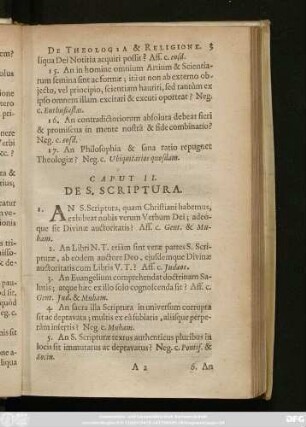 DE THEOLOGIA & RELIGIONE. 3
liqua Dei Notitia acquiri possit? Aff. c. eosd.
15. An in homine omnium Artium & Scientia-
rum semina sint ac formæ; ita ut non ab externo ob-
jecto, vel principio, scientiam hauriri, sed tantùm ex
ipso omnem illam excitari & excuti oporteat? Neg.
c. Enthusiastas.
16. An contradictoriorum absoluta debeat fieri
& promiscua in mente nostrâ & fide combinatio?
Neg. c. eosd.
17. An Philosophia & sana ratio repugnet
Theologiæ? Neg. c. Ubiquitarios quosdam.
CAPUT II.
DE S. SCRIPTURA.
1. AN S. Scriptura, quam Christiani habemus,
exhibeat nobis verum Verbum Dei; adeo-
que sit Divinæ auctoritatis? Aff. c. Gent. & Mu-
ham.
2. An Libri N. T. etiam sint veræ partes S. Scri-
pturæ, ab eodem auctore Deo, ejusdémque Divinæ
auctoritatis cum Libris V. T.? Aff. c. Judæos.
3. An Euangelium comprehendat doctrinam Sa-
lutis; inque hâc ex illo solo cognoscenda sit? Aff. c.
Gent. Jud. & Muham.
4. An sacra illa Scriptura in universum corrupta
sit ac depravata; multis ex eâ sublatis, aliisque perpe-
ràm insertis? Neg. c. Muham.
5. An S. Scripturæ textus authenticus pluribus in
locis sit immutatus ac depravatus? Neg. c. Pontif. &
A 2 6. An